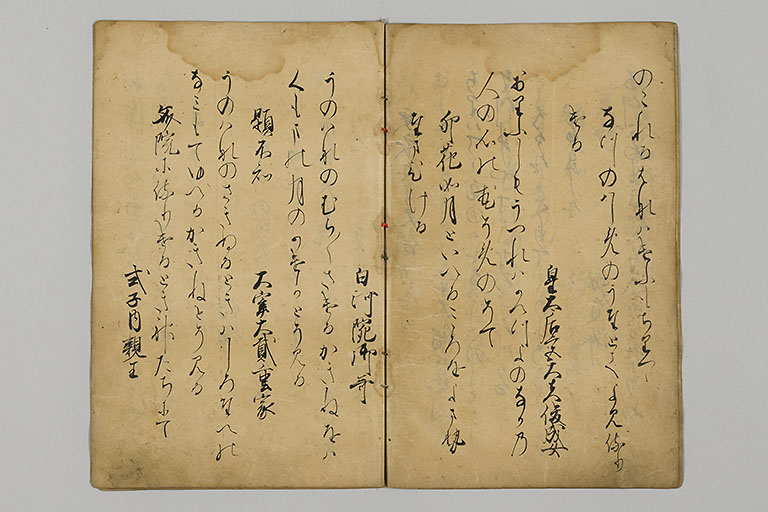 のこれるはなハけふもちりつゝ
なつのハしめのうたとてよみ侍り
ける
皇太后宮大夫俊成女
おりふしもうつれハかへつよのなかの
人の心の花そめのそて
卯花如月といへるこゝろをよませ
給ひける
白河院御哥
うのハなのむら／＼さけるかきねをハ
くもまの月のかけかとそみる
題不知
大宰大貳重家
うのハなのさきぬるときハしろたへの
なみもてゆへるかきねとそみる
斎院に侍りけるとき神たちにて
式子内親王